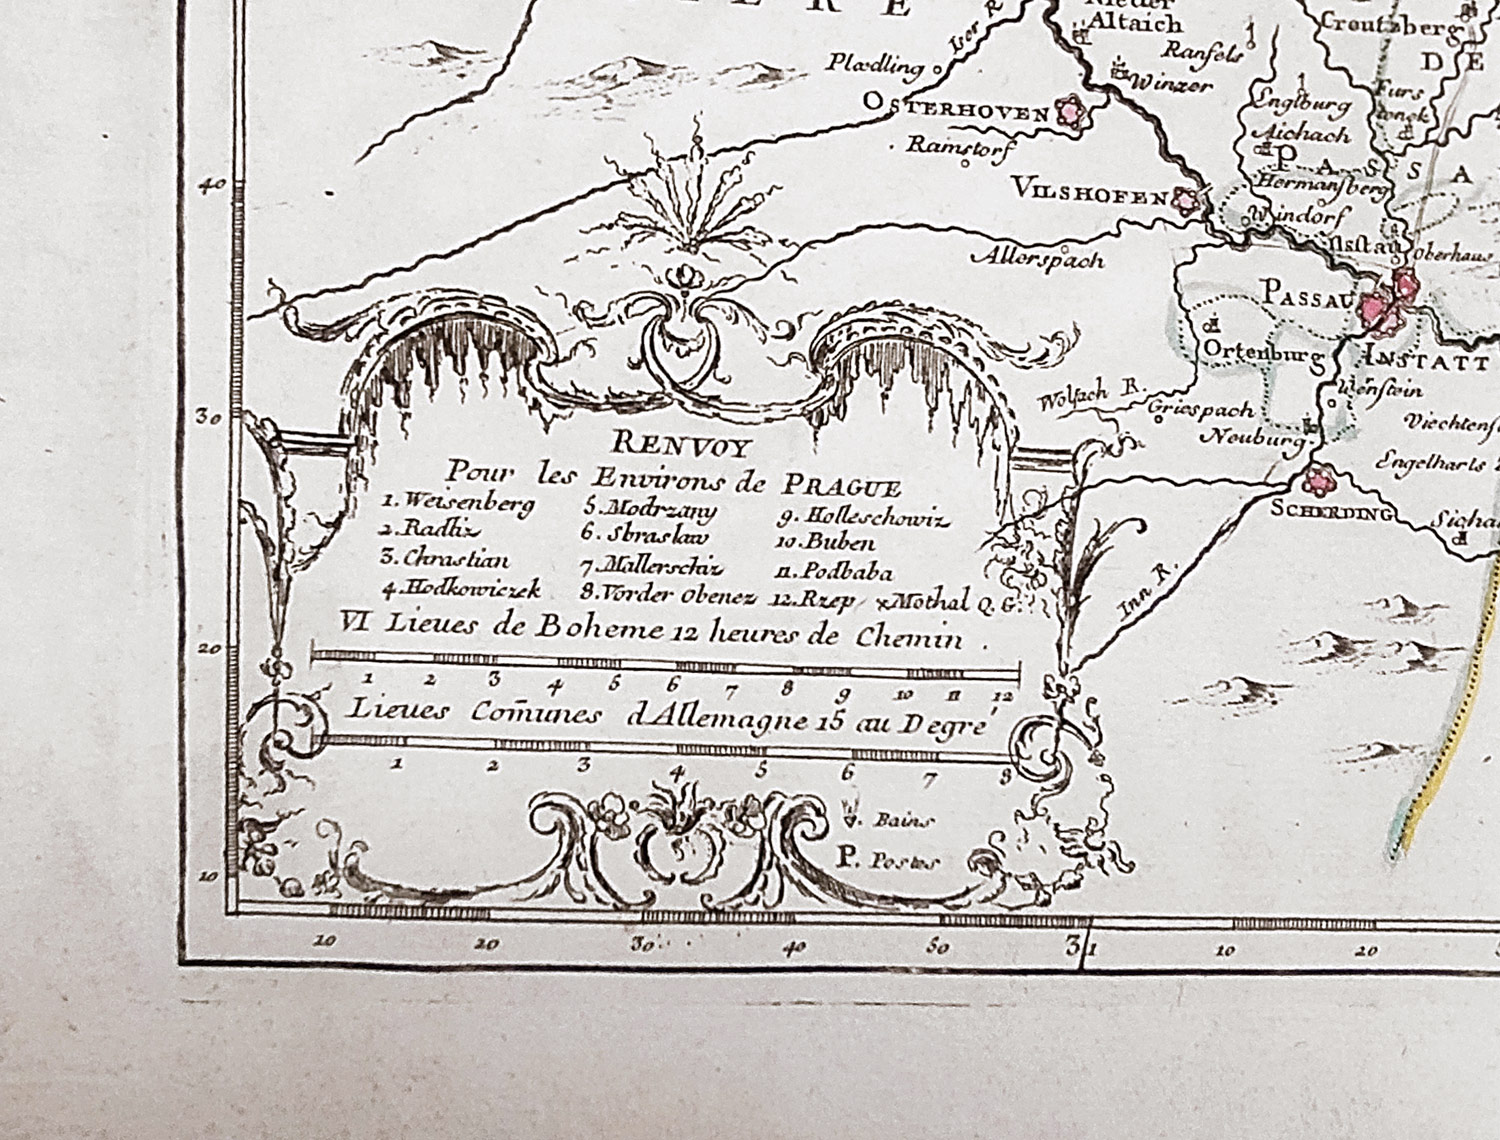 E R E
Altaich
Iser R
Creutzberg
Ransfels
D E
Plædling
Winzer
Englburg
Furs
OSTERHOVEN
Aichach
Ramstorf
P A S S A
Hermansberg
VILSHOFEN
Windorf
Allerspach
Oberhaus
PASSAU
Ortenburg
INSTATT
Wolfach R.
Griespach
Viechtens
Neuburg
Engelharts
SCHERDING
Inn R.
40
30
20
10
RENVOY
Pour les Environs de PRAGUE
1. Weisenberg 5. Modrzany 9. Holleschowiz
2. Radliz 6. Sbraslaw 10. Buben
3. Chrastian 7. Mallerschiz 11. Podbaba
4. Hodkowiczek 8. Vorder Obenez 12. Rzep x Mothal Q. G.
VI Lieues de Boheme 12 heures de Chemin.
1 2 3 4 5 6 7 8 9 10 11 12
Lieues Com̄unes d'Allemagne 15 au Degré
1 2 3 4 5 6 7 8
Bains
P. Postes
10 20 30 40 50 31 10 20